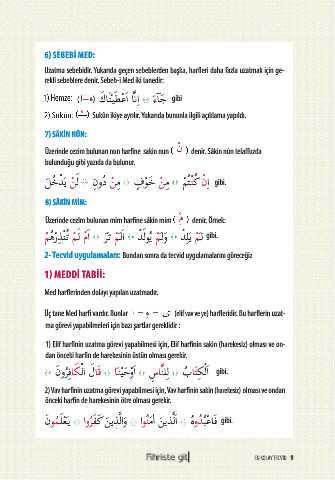 6) SEBEBİ MED:
Uzatma sebebidir. Yukarıda geçen sebeblerden başka, harfleri daha fazla uzatmak için ge-
rekli sebeblere denir. Sebeb-i Med iki tanedir:
1) Hemze: (ء - ا) جَٓاءَ ** اِنَّٓا اَعْطَيْنَاكَ gibi
2) Sukûn: Sukûn ikiye ayrılır. Yukarıda bununla ilgili açıklama yapıldı.
7) SÂKİN NÛN:
Üzerinde cezim bulunan nun harfine sakin nun ( نْ ) denir. Sâkin nûn telaffuzda
bulunduğu gibi yazıda da bulunur.
اِنْ كُنْتُمْ ** مِنْ خَوْفٍ ** مِنْ دُونِ ** لَنْ يَدْخُلَ gibi.
8) SÂKİN MİM:
Üzerinde cezim bulunan mim harfine sâkin mim ( مْ ) denir. Örnek:
لَمْ يَلِدْ ** وَلَمْ يُولَدْ ** اَلَمْ تَرَ ** اَمْ لَمْ تُنْذِرْهُمْ gibi.
2- Tecvid uygulamaları: Bundan sonra da tecvid uygulamalarını göreceğiz
1) MEDDİ TABİİ:
Med harflerinden dolayı yapılan uzatmadır.
Üç tane Med harfi vardır. Bunlar ا - و - ى (elif vav ve ye) harfleridir. Bu harflerin uzat-
ma görevi yapabilmeleri için bazı şartlar gereklidir :
1) Elif harfinin uzatma görevi yapabilmesi için, Elif harfinin sakin (harekesiz) olması ve on-
dan önceki harfin de harekesinin üstün olması gerekir.
اَلْكِتَابُ ** لِلنَّاسِ ** اَوْحَيْنَا ** قَالَ الْكَافِرُونَ gibi.
2) Vav harfinin uzatma görevi yapabilmesi için, Vav harfinin sakin (harekesiz) olması ve ondan
önceki harfin de harekesinin ötre olması gerekir.
فَاعْبُدُوهُ ** اَلَّذِينَ اٰمَنُوا ** وَالَّذِينَ كَفَرُوا ** يَعْلَمُونَ gibi.
Fihriste git
9